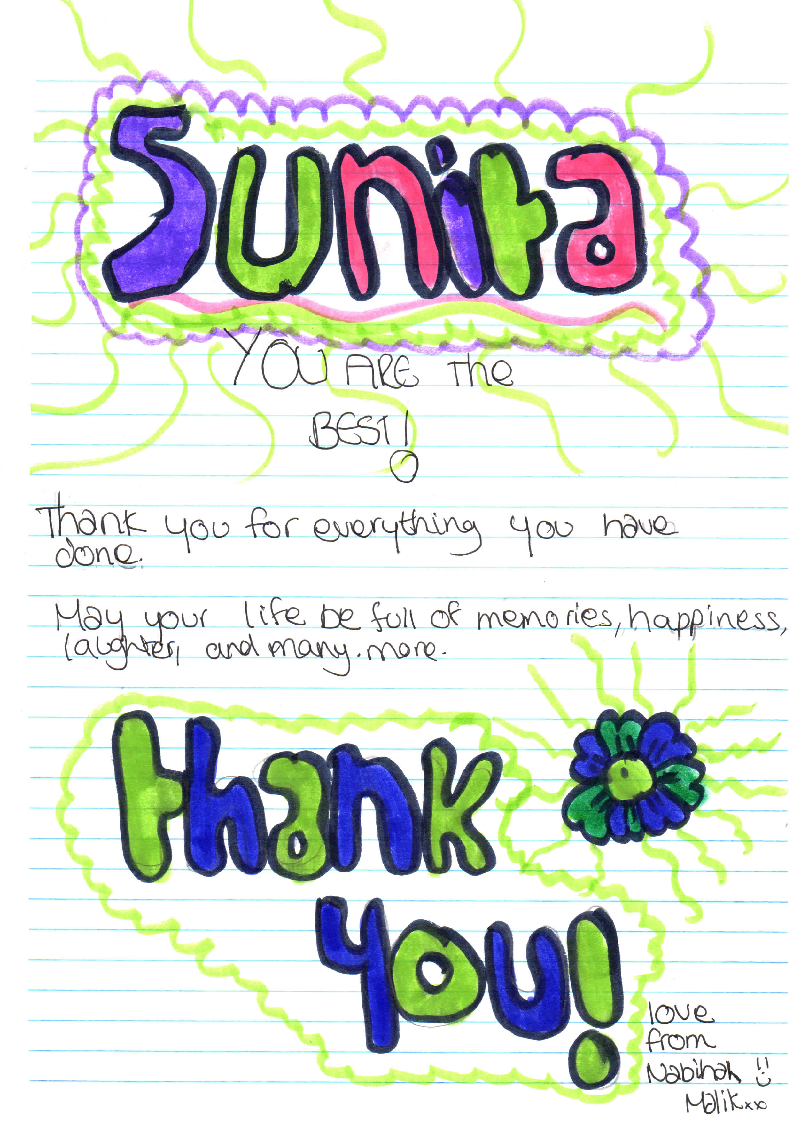 Sunita
YOU ARE The
BEST!
Thank you for everything you have
done.
May your life be full of memories, happiness,
laughter, and many. more.
thank
you!
love
from
Nabihah
Malik xxo